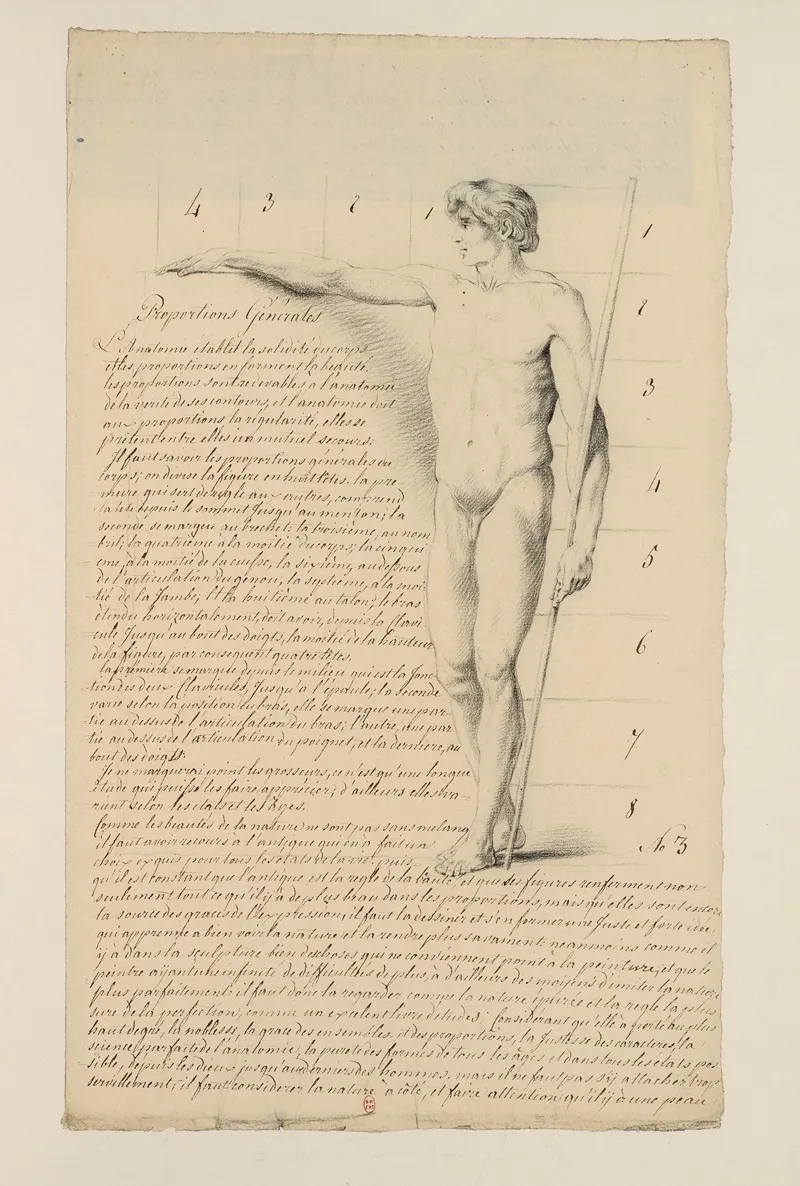 4 3 2 1
1
2
3
4
5
6
7
8
No 3
Proportions Générales
L'Anatomie établit la solidité du corps
et les proportions en forment la beauté.
les proportions sont redevables à l'anatomie
de la verité de ses contours, et l'anatomie doit
aux proportions la régularité, elles se
prêtent entre elles un mutuel secours:
Il faut savoir les proportions générales du
corps; on divise la figure en huit têtes. la pre-
miere qui sert de regle aux autres, comprend
la tete depuis le sommet Jusqu'au menton; la
seconde, se marque au brechet; la troisième, au nom
bril; la quatrième à la moitié du corps; la cinqui
eme, à la moitié de la cuisse, la sixième, au dessous
de l'articulation du genou, la septieme, à la moi-
tié de la Jambe; et la huitième au talon; le bras
étendu horizontalement, doit avoir, depuis la clavi
cule Jusqu'au bout des doigts, la moitié de la hauteur
de la figure, par consequent quatre têtes.
la premiere se marque depuis le milieu qui est la Jonc
tion des deux Clavicules, Jusqu'à l'épaule; la seconde
varie selon la position du bras, elle se marque une par
tie au dessus de l'articulation du bras; l'autre, une par
tie au dessus de l'articulation du poignet, et la derniere, au
bout des doigts.
Je ne marquerai point les grosseurs, ce n'est qu'une longue
étude qui puisse les faire apprécier; d'ailleurs elles va-
rient selon les états et les âges.
Comme les beautés de la nature ne sont pas sans melang
il faut avoir recours à l'antique qui en a fait un
choix exquis pour tous les états de la vie, puis
qu'il est constant que l'antique est la regle de la beauté, et que ses figures renferment non
seulement tout ce qu'il y à de plus beau dans les proportions, mais qu'elles sont encore
la source des graces de l'expression, il faut la dessiner et s'en former une Juste et forte idée
qui apprenne a bien voir la nature et la rendre plus savament: neanmoins comme il
y à dans la sculpture bien des choses qui ne conviennent point à la peinture, et que le
peintre ayant une infinité de difficultés de plus, à d'ailleurs des moyens d'imiter la nature
plus parfaitement: il faut donc la regarder comme la nature épurée et la regle la plus
sure de la perfection, comme un excelent livre d'etudes; Considérant qu'elle à porté au plus
haut degré, la noblesse, la grace des ensembles et des proportions, la Justesse des caracteres, la
science parfaite de l'anatomie, la pureté des formes de tous les âges et dans tous les états pos
sible, depuis les dieux jusqu'aux derniers des hommes. mais il ne faut pas s'y attacher trop
servillement; il faut considerer la nature à côté, et faire attention qu'il y à une peau